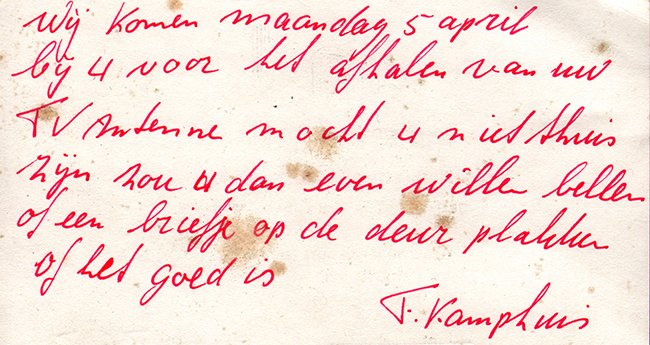 Wij komen maandag 5 april
bij u voor het afhalen van uw
TV Antenne mocht u niet thuis
zijn zou u dan even willen bellen
of een briefje op de deur plakken
of het goed is
F. Kamphuis